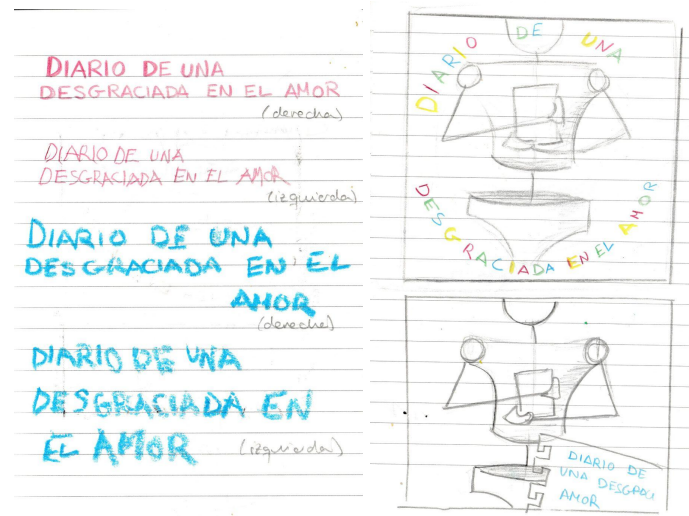 DIARIO DE UNA
DESGRACIADA EN EL AMOR
(derecha)
DIARIO DE UNA
DESGRACIADA EN EL AMOR
(izquierda)
DIARIO DE UNA
DESGRACIADA EN EL
AMOR
(derecha)
DIARIO DE UNA
DESGRACIADA EN
EL AMOR (izquierda)
DIARIO DE UNA
DESGRACIADA EN EL AMOR
DIARIO DE
UNA
AMOR